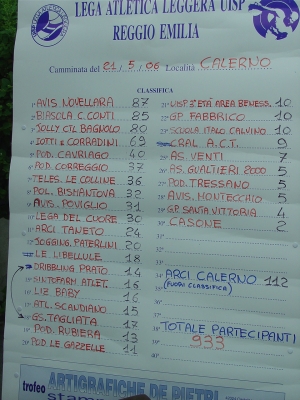 LEGA ATLETICA LEGGERA UISP
REGGIO EMILIA
Camminata del 21/5/06 Località CALERNO
CLASSIFICA
1° AVIS NOVELLARA 87
2° BIASOLA C. CONTI 85
3° JOLLY CTL BAGNOLO 80
4° IOTTI & CORRADINI 69
5° POD. CAVRIAGO 40
6° POD. CORREGGIO 37
7° TELES. LE COLLINE 36
8° POL. BISMANTOVA 32
9° AVIS. POVIGLIO 31
10° LEGA DEL CUORE 30
11° ARCI TANETO 24
12° JOGGING. PATERLINI 20
LE LIBELLULE 18
DRIBBLING PRATO 14
SINTOFARM ATLET. 16
LIZ BABY 16
ATL. SCANDIANO 15
GS. TAGLIATA 17
POD. RUBIERA 13
20° POD LE GAZZELLE 11
21° UISP 3ª ETÀ AREA BENESS. 10
22° GP. FABBRICO 10
23° SCUOLA ITALO CALVINO 10
24° CRAL A.C.T. 9
25° AS. VENTI 7
26° AS. GUALTIERI 2000 5
27° POD. TRESSANO 5
28° AVIS. MONTECCHIO 5
29° GP. SANTA VITTORIA 4
30° CASONE 2
ARCI CALERNO 112
(FUORI CLASSIFICA)
TOTALE PARTECIPANTI
933
trofeo ARTIGRAFICHE DE PIETRI